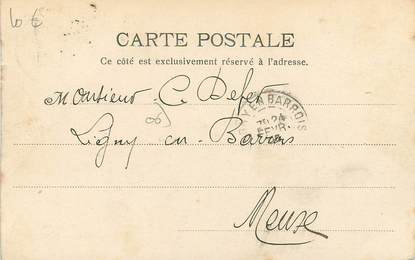 10 €
CARTE POSTALE
Ce côté est exclusivement réservé à l'adresse.
Monsieur C. Defer
Ligny en Barrois
EN BARROIS
24
FEVR.
Meuse